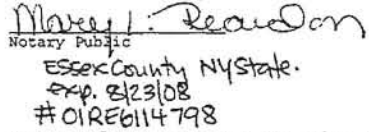 Mary L. Reardon
Notary Public
Essex County NY State.
exp. 8/23/08
# 01RE6114798